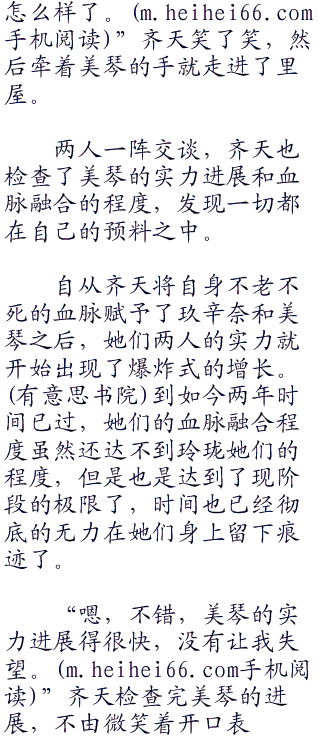 怎么样了。(m.heihei66.com
手机阅读)”齐天笑了笑，然
后牵着美琴的手就走进了里
屋。
两人一阵交谈，齐天也
检查了美琴的实力进展和血
脉融合的程度，发现一切都
在自己的预料之中。
自从齐天将自身不老不
死的血脉赋予了玖辛奈和美
琴之后，她们两人的实力就
开始出现了爆炸式的增长。
(有意思书院)到如今两年时
间已过，她们的血脉融合程
度虽然还达不到玲珑她们的
程度，但是也是达到了现阶
段的极限了，时间也已经彻
底的无力在她们身上留下痕
迹了。
“嗯，不错，美琴的实
力进展得很快，没有让我失
望。(m.heihei66.com手机阅
读)”齐天检查完美琴的进
展，不由微笑着开口表